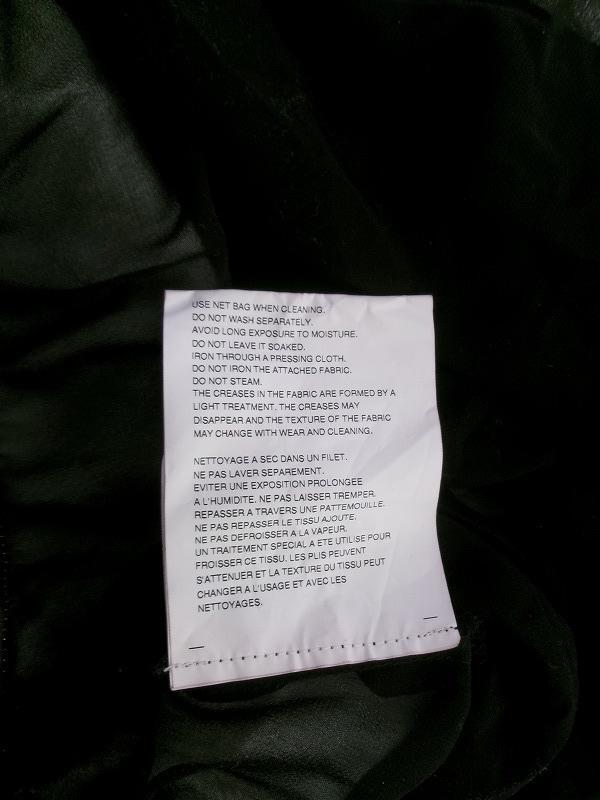 USE NET BAG WHEN CLEANING.
DO NOT WASH SEPARATELY.
AVOID LONG EXPOSURE TO MOISTURE.
DO NOT LEAVE IT SOAKED.
IRON THROUGH A PRESSING CLOTH.
DO NOT IRON THE ATTACHED FABRIC.
DO NOT STEAM.
THE CREASES IN THE FABRIC ARE FORMED BY A
LIGHT TREATMENT. THE CREASES MAY
DISAPPEAR AND THE TEXTURE OF THE FABRIC
MAY CHANGE WITH WEAR AND CLEANING.
NETTOYAGE A SEC DANS UN FILET.
NE PAS LAVER SEPAREMENT.
EVITER UNE EXPOSITION PROLONGEE
A L'HUMIDITE. NE PAS LAISSER TREMPER.
REPASSER A TRAVERS UNE PATTEMOUILLE.
NE PAS REPASSER LE TISSU AJOUTE.
NE PAS DEFROISSER A LA VAPEUR.
UN TRAITEMENT SPECIAL A ETE UTILISE POUR
FROISSER CE TISSU. LES PLIS PEUVENT
S'ATTENUER ET LA TEXTURE DU TISSU PEUT
CHANGER A L'USAGE ET AVEC LES
NETTOYAGES.